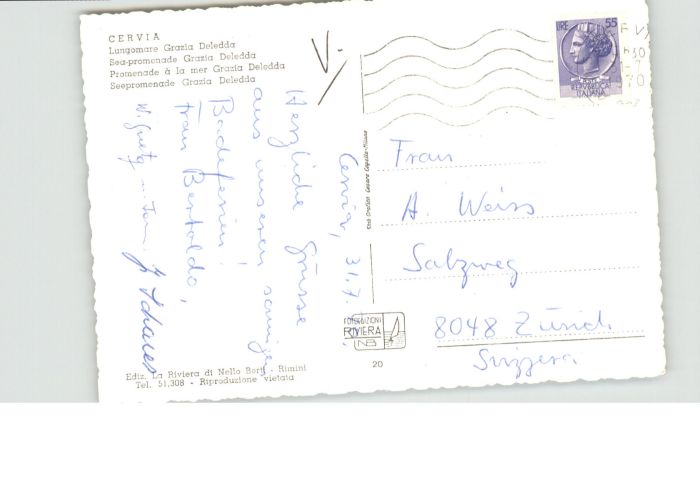 CERVIA
Lungomare Grazia Deledda
Sea-promenade Grazia Deledda
Promenade à la mer Grazia Deledda
Seepromenade Grazia Deledda
LIRE 55
REPUBBLICA
ITALIANA
Cervia, 31.7.
Herzliche Grüsse
aus unseren sonnigen
Badeferien!
Frau Bertoldo,
Frau
A. Weiss
Salzweg
8048 Zürich
Suizzera
FOTOEDIZIONI
RIVIERA
NB
20
Ediz. La Riviera di Nello Borg - Rimini
Tel. 51,308 - Riproduzione vietata